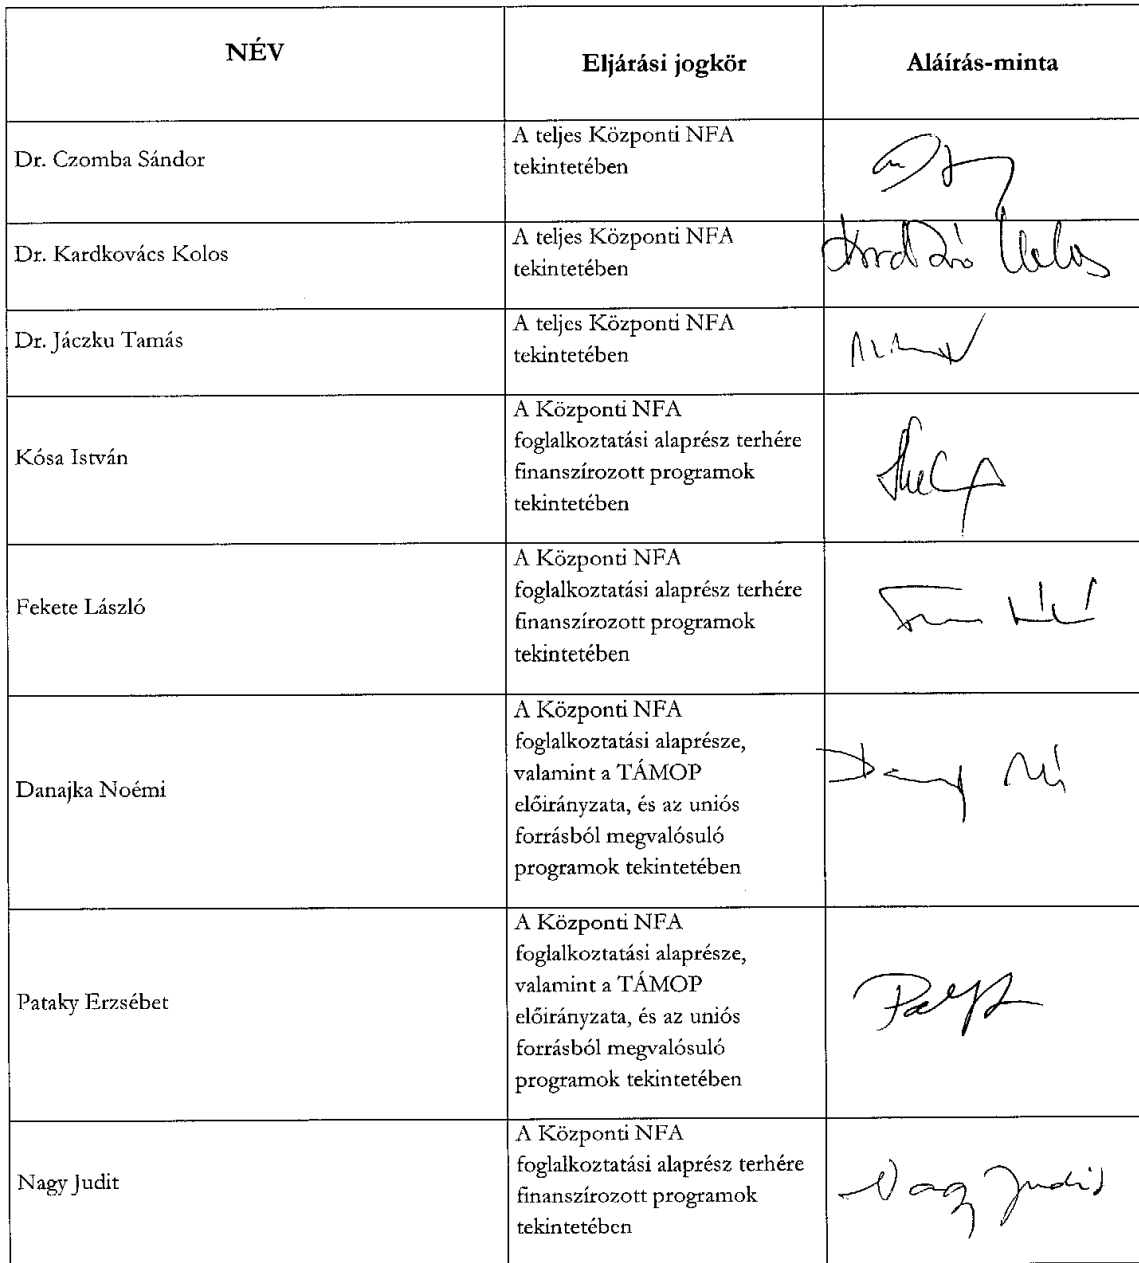 NÉV
Eljárási jogkör
Aláírás-minta
Dr. Czomba Sándor
A teljes Központi NFA
tekintetében
Dr. Kardkovács Kolos
A teljes Központi NFA
tekintetében
Kolos
Dr. Jáczku Tamás
A teljes Központi NFA
tekintetében
Kósa István
A Központi NFA
foglalkoztatási alaprész terhére
finanszírozott programok
tekintetében
Fekete László
A Központi NFA
foglalkoztatási alaprész terhére
finanszírozott programok
tekintetében
Danajka Noémi
A Központi NFA
foglalkoztatási alaprésze,
valamint a TÁMOP
előirányzata, és az uniós
forrásból megvalósuló
programok tekintetében
Pataky Erzsébet
A Központi NFA
foglalkoztatási alaprésze,
valamint a TÁMOP
előirányzata, és az uniós
forrásból megvalósuló
programok tekintetében
Nagy Judit
A Központi NFA
foglalkoztatási alaprész terhére
finanszírozott programok
tekintetében
Nagy Judit